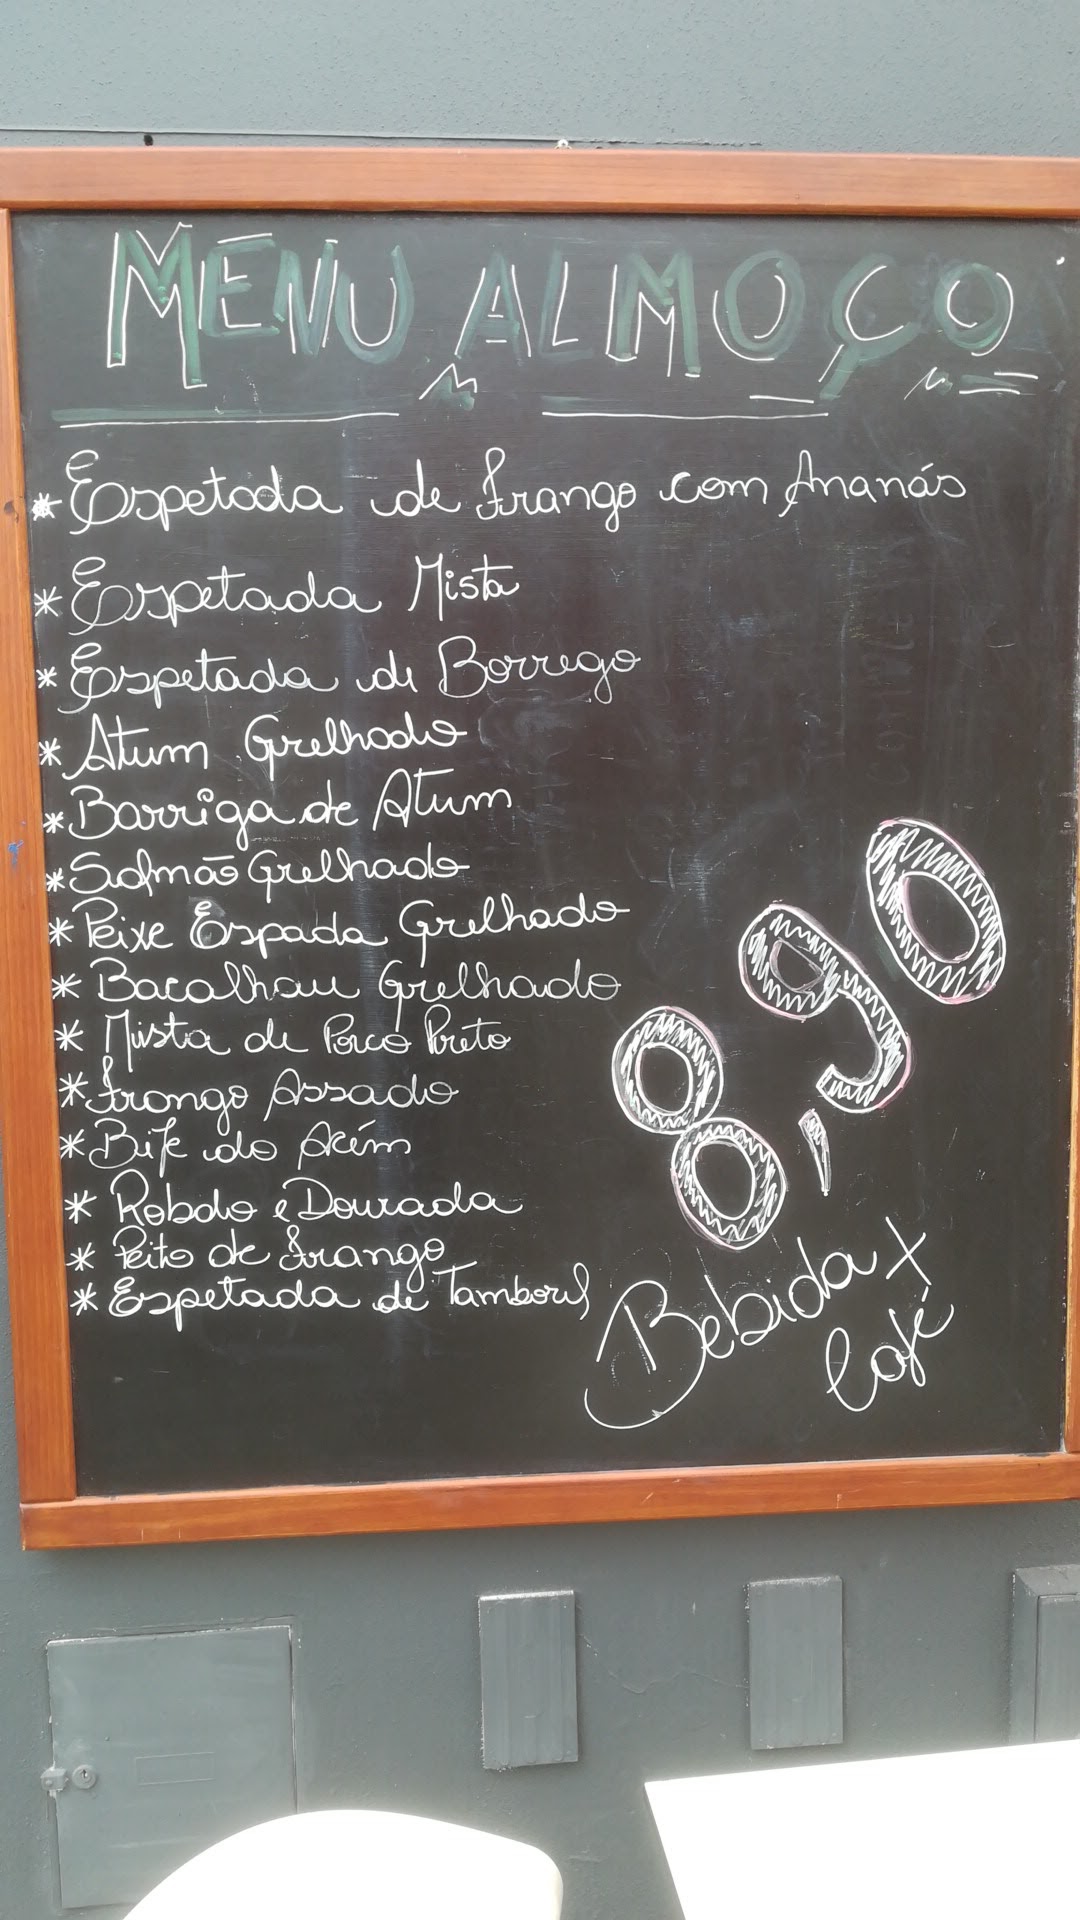 MENU ALMOÇO
* Espetada de Frango com Ananás
* Espetada Mista
* Espetada de Borrego
* Atum Grelhado
* Barriga de Atum
* Salmão Grelhado
* Peixe Espada Grelhado
* Bacalhau Grelhado
* Mista de Porco Preto
* Frango Assado
* Bife do Acém
* Robalo e Dourada
* Peito de Frango
* Espetada de Tamboril
8,90
Bebida +
Café